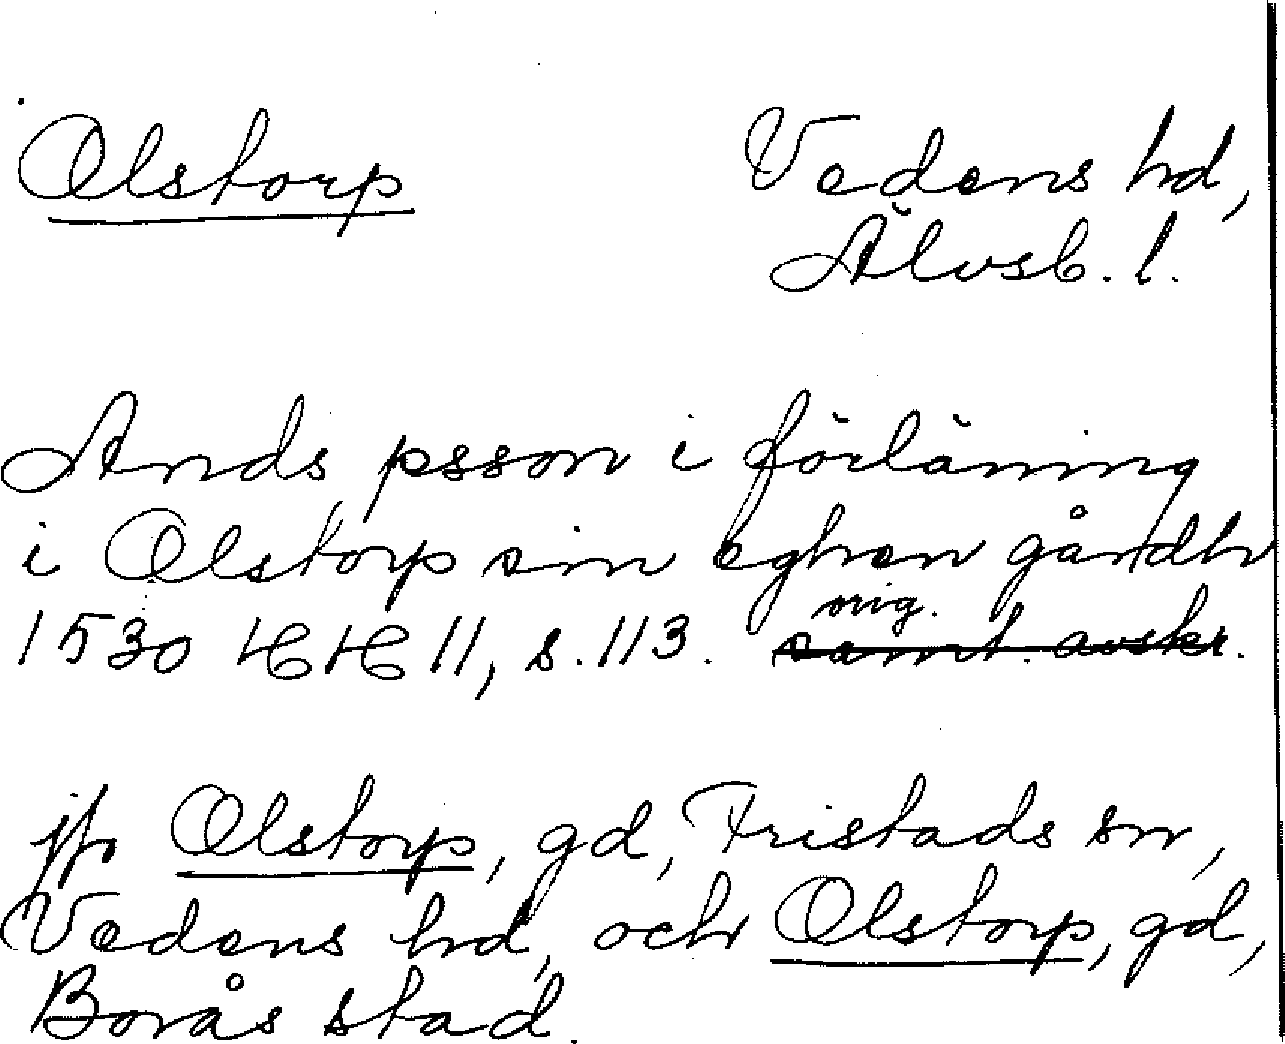 Olstorp Vedens hd,
Älvsb. l.
Ands psson i förläning
i Olstorp sin eghen gårdh
orig.
1530 HH 11, s. 113. samt. avskr.
jfr Olstorp, gd, Fristads sn,
Vedens hd, och Olstorp, gd,
Borås stad.